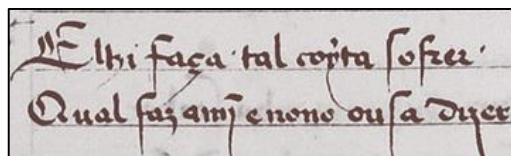 Elhi faça tal coyta sofrer
Qual faz amĩ e nono ousa dizer